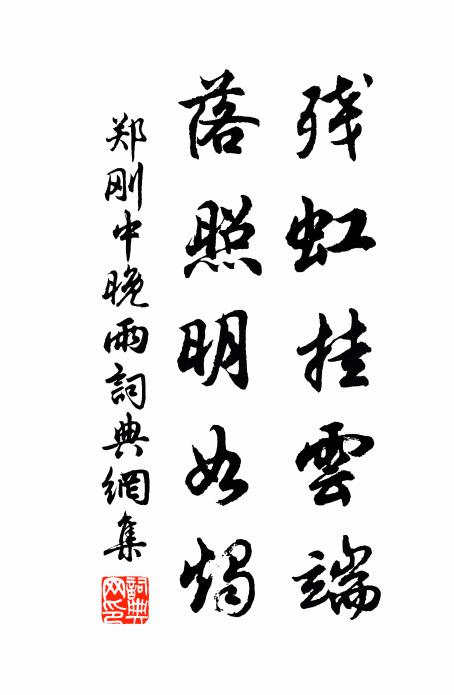 残虹挂雲端
落照明如燭
郑刚中晚雨詞典網集
詞典網印